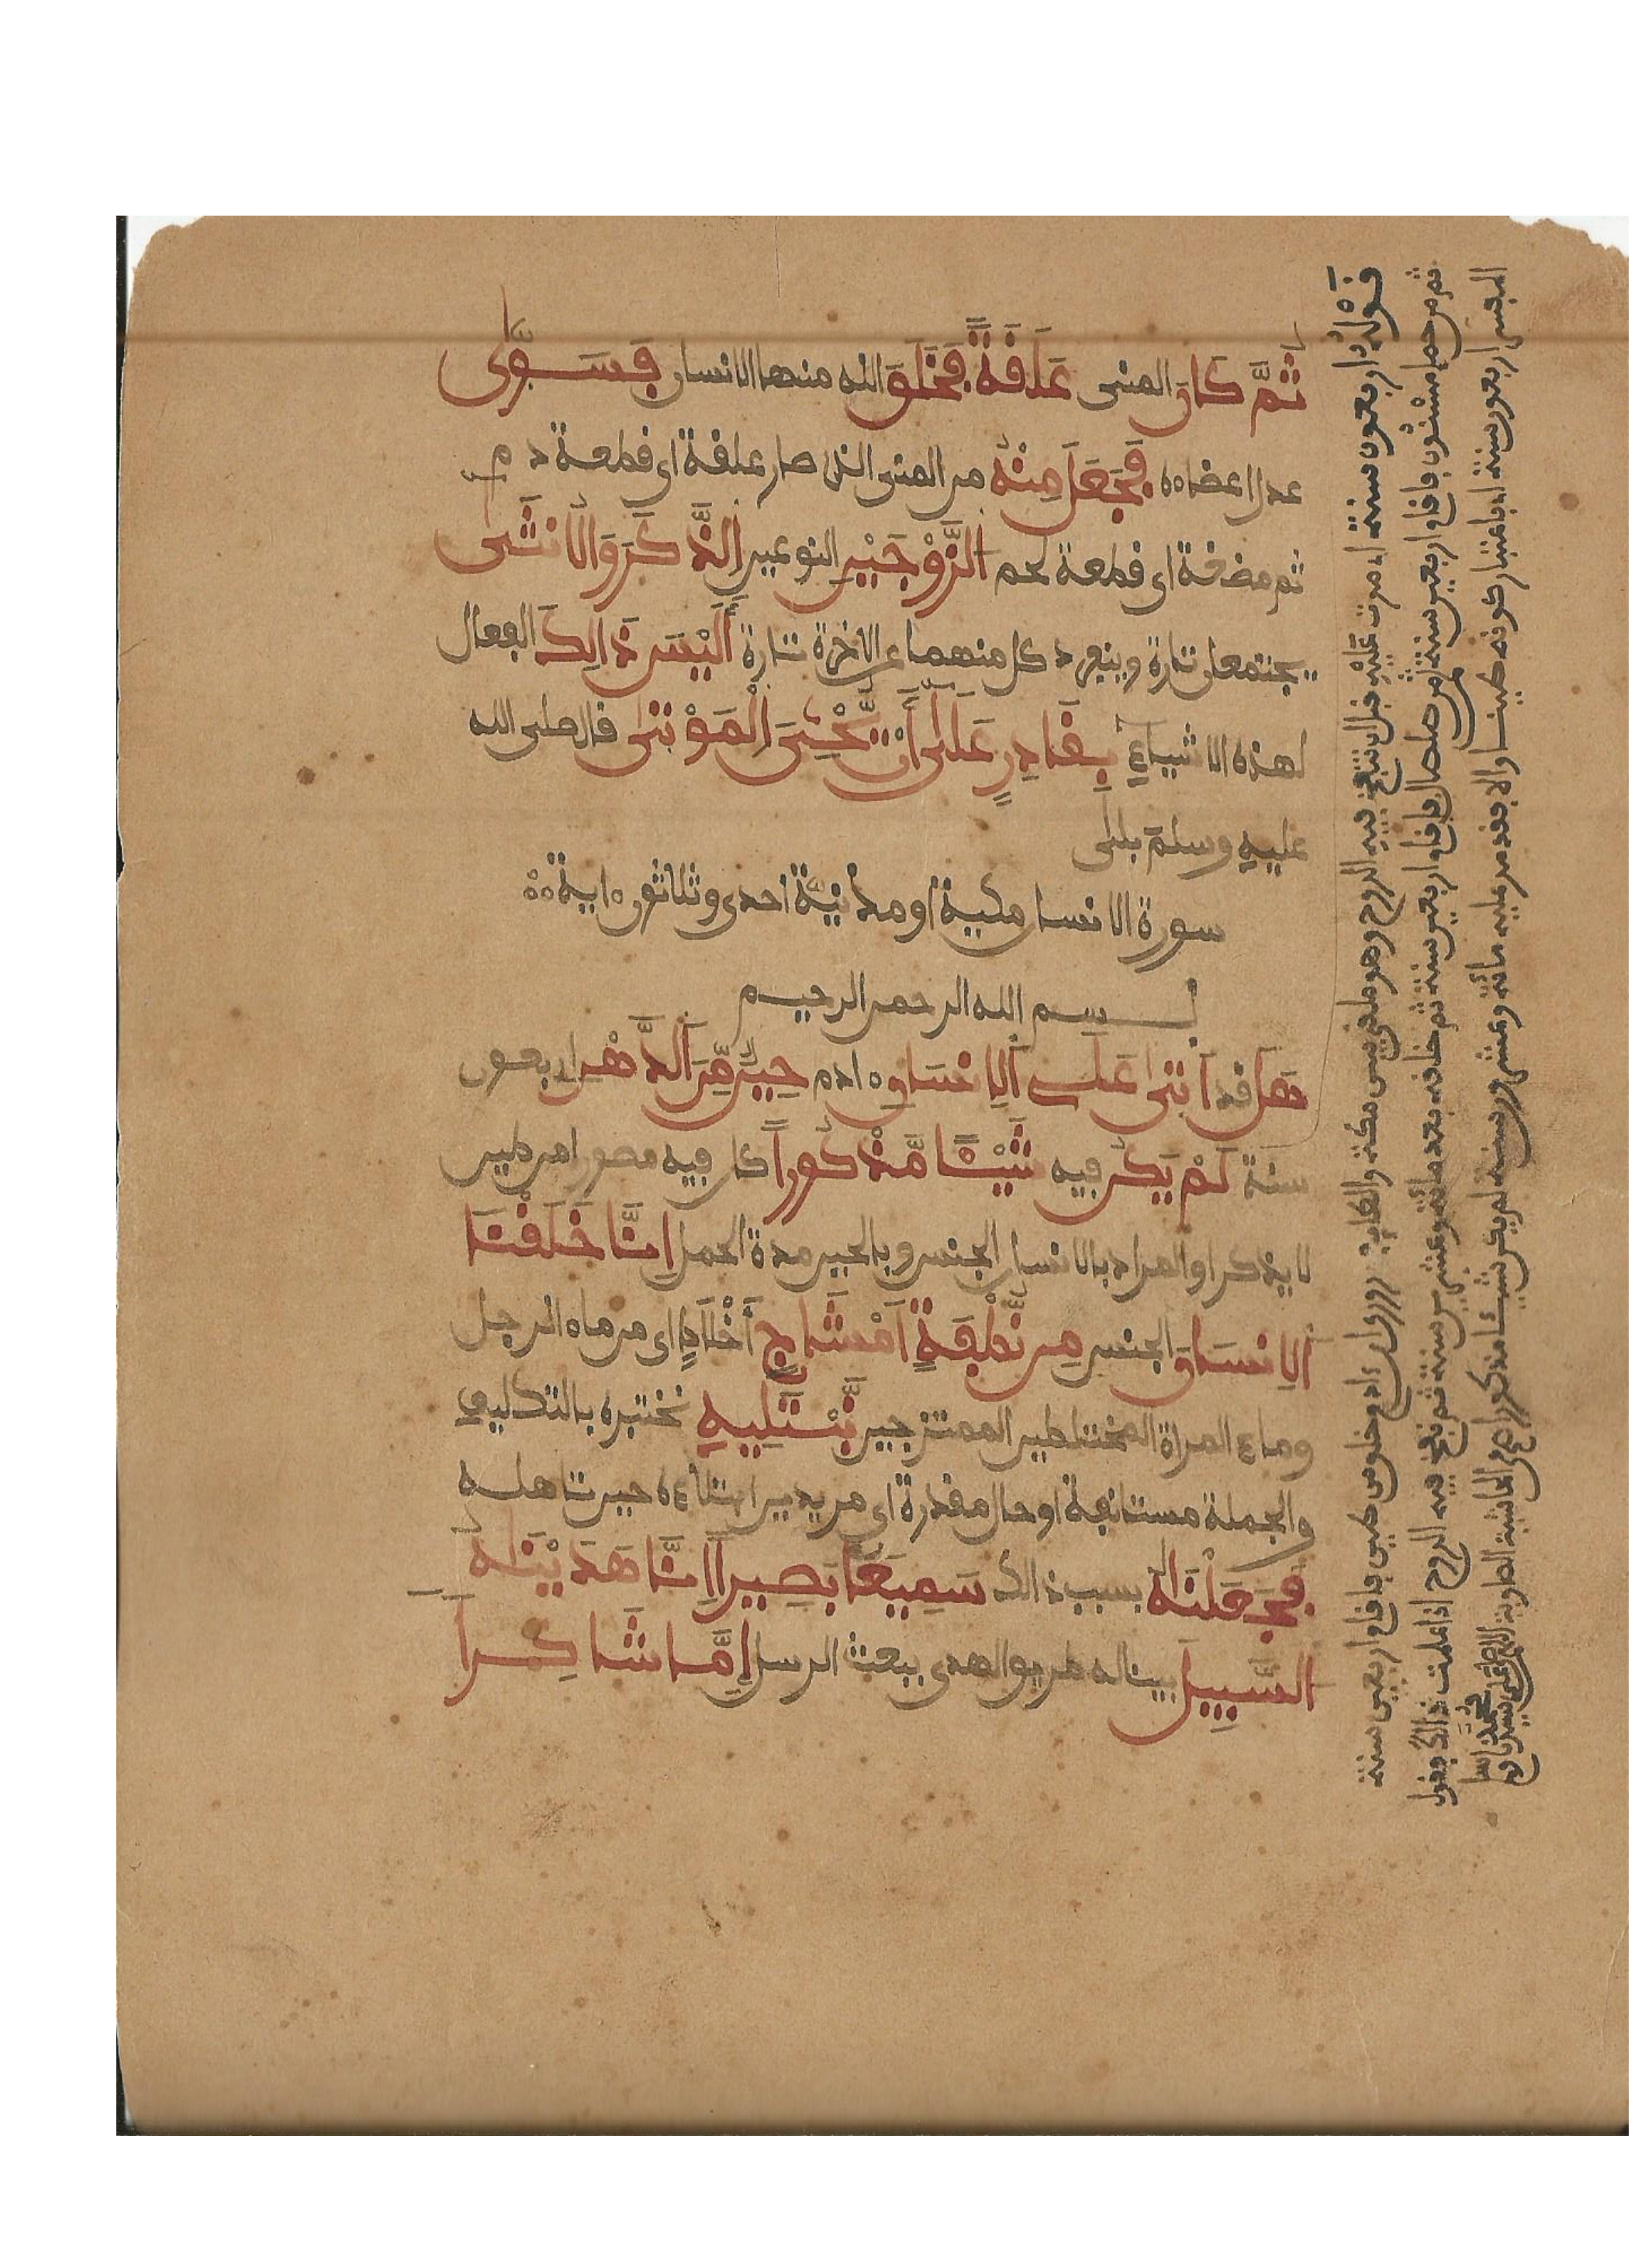 ثُمَّ كَانَ المنى عَلَقَةً فَخَلَقَ الله منها الانسان فَسَوَّى
عدل اعضاءه فَجَعَلَ مِنْهُ من المنى الذى صار علقة اى قطعة دم
ثم مضغة اى قطعة لحم الزَّوْجَيْنِ النوعين الذَّكَرَ وَالْأُنثَى
يجتمعان تارة وينفرد كل منهما عن الاخر تارة أَلَيْسَ ذَالِكَ الفعال
لهذه الاشياء بِقَادِرٍ عَلَى أَنْ يُّحْيِيَ الْمَوْتَى قال صلى الله
عليه وسلم بلى
سورة الانسان مكية او مدنية احدى وثلاثون اية
بسم الله الرحمن الرحيم
هَلْ قد أَتَى عَلَى الْإِنسَانِ ادم حِينٌ مِّنَ الدَّهْرِ اربعون
سنة لَمْ يَكُن فيه شَيْئًا مَّذْكُوراً كان فيه مصورا من طين
لا يذكر او المراد بالانسان الجنس وبالحين مدة الحمل إِنَّا خَلَقْنَا
الْإِنسَانَ الجنس مِن نُّطْفَةٍ أَمْشَاجٍ أخلاط اى من ماء الرجل
وماء المراة المختلطين الممتزجين نَّبْتَلِيهِ نختبره بالتكليف
والجملة مستانفة او حال مقدرة اى مريدين ابتلاءه حين تاهله
فَجَعَلْنَاهُ بسبب ذالك سَمِيعًا بَصِيراً إِنَّا هَدَيْنَاهُ
السَّبِيلَ بينا له طريق الهدى ببعث الرسل إِمَّا شَاكِراً
قوله اربعون سنة اى مرت عليه قبل ان تنفخ فيه الروح وهو ملقى بين مكة والطايف روى ان ادم خلق من طين فاقام اربعين سنة
ثم من حمإ مسنون فاقام اربعين سنة ثم من صلصال فاقام اربعين سنة ثم خلقه بعد مائة وعشرين سنة ثم نفخ فيه الروح اذا علمت ذالك فقول
المفسر اربعون سنة اى باعتبار كونه طينا والا فقد مر عليه مائة وعشرون سنة لم يكن شيئا مذكورا